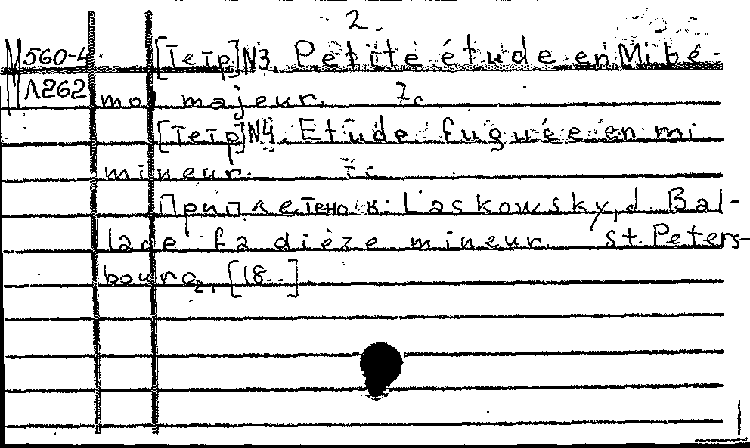 2.
М560-4 [Тетр] N3. Petite étude en Mi bé-
Л262 mol majeur. 7с
[Тетр] N4. Etude fuguée en mi
mineur. 7с
Приплетено к: Laskowsky, J. Bal-
lade fa dièze mineur. St. Peters-
bourg, [18..]